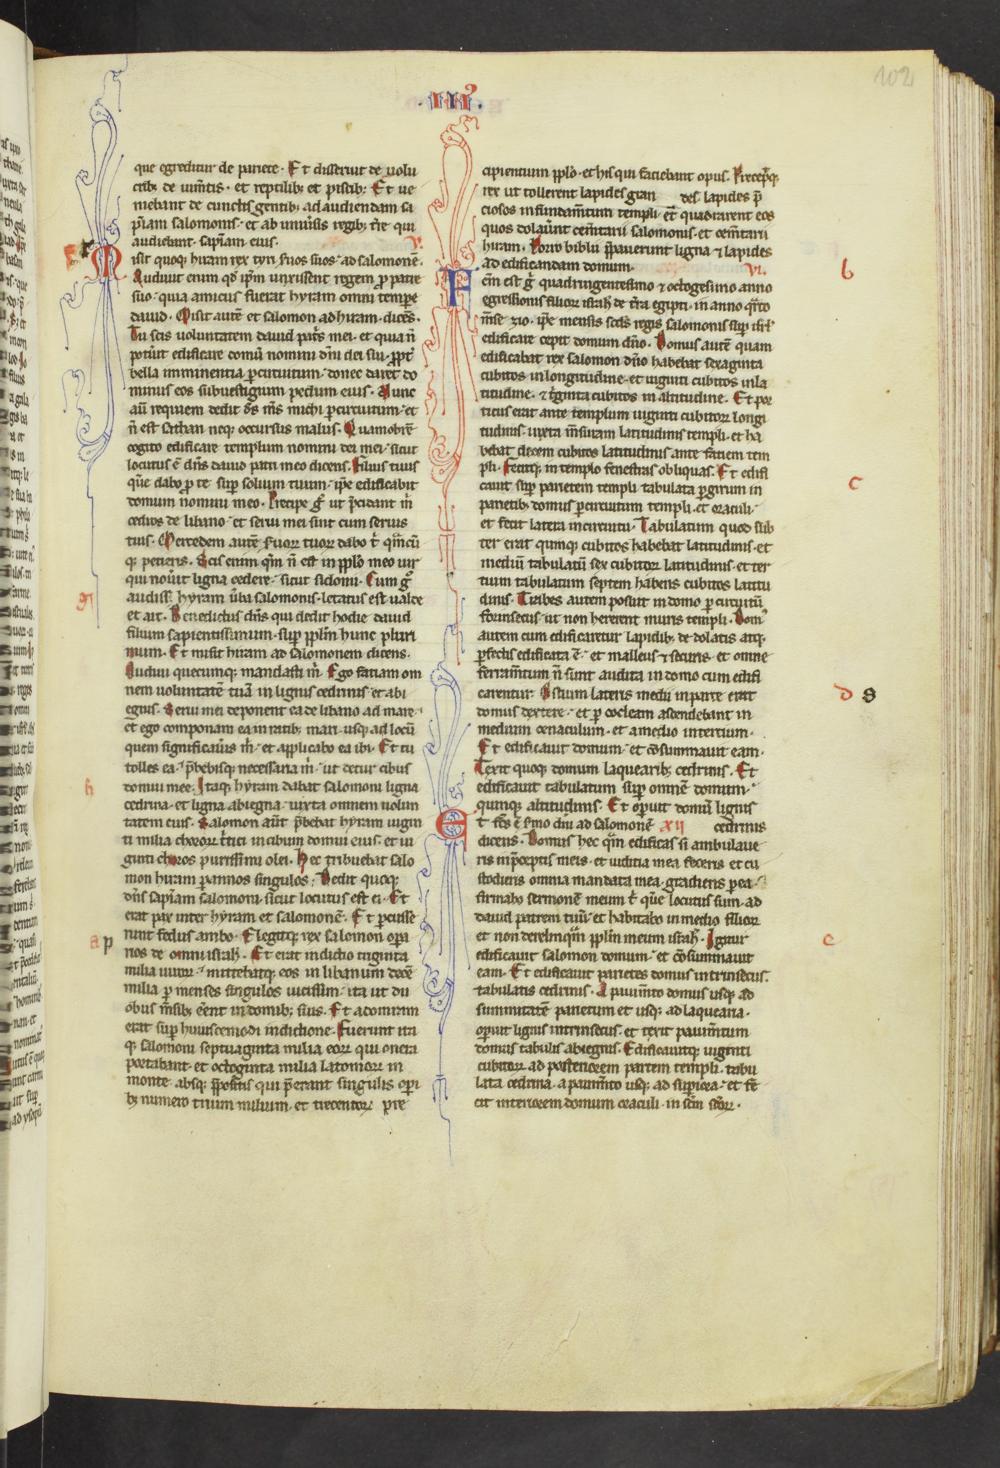 102
.III.
que egreditur de pariete. Et disseruit de uolu
crib; de iumtis. et reptilib; et piscib; Et ue
niebant de cunctis gentib; ad audiendam sa
piam salomonis. et ab uniusis regib; tre qui
audiebant sapiam eius. V.
Misit quoq; hiram rex tyri suos suos ad salomone.
Audiuit enim qd ipm unxissent regem p patre
suo. quia amicus fuerat hyram omni tempe
dauid. Misit aute et salomon ad hiram dices.
Tu scis voluntatem dauid patris mei. et quia n
potuit edificare domu nomini dni dei sui. ppt
bella imminentia p circuitum. donec daret do
minus eos sub uestigium pedum eius. Nunc
au requiem dedit ds ms michi p circuitum. et
n est sathan neq; occursus malus. Quamobre
cogito edificare templum nomini dei mei. sicut
locutus e dns dauid patri meo dicens. Filius tuus
que dabo p te sup solium tuum. ipe edificabit
domum nomini meo. Precipe g ut pcidant m
cedros de libano. et serui mei sint cum seruis
tuis. Mercedem aute suor tuor dabo t qmcu
q; petieris. Scis enim qm n est in pplo meo uir
qui nouit ligna cedere. sicut sidonii. Cum g
audiss hyram uba salomonis. letatus est ualde
et ait. Benedictus dns qui dedit hodie dauid
filium sapientissimum. sup pplm hunc pluri
mum. Et misit hiram ad salomonem dicens.
Audiui quecumq; mandasti m. Ego faciam om
nem uoluntate tua in lignis cedrinis et abi
egnis. Serui mei deponent ea de libano ad mare.
et ego componam ea in ratib; mari. usq; ad locu
quem significauis m. et applicabo ea ibi. Et tu
tolles ea. phebisq; necessaria m. ut detur cibus
domui mee. Itaq; hyram dabat salomoni ligna
cedrina. et ligna abiegna. iuxta omnem uolun
tatem eius. Salomon aut phebat hyram uigin
ti milia chororr tritici in cibum domui eius. et ui
ginti choros purissimi olei. Hec tribuebat salo
mon hiram p annos singulos. Dedit quoq;
dns sapiam salomoni. sicut locutus est ei. Et
erat pax inter hyram et salomone. Et pcusse
runt fedus ambo. Elegitq; rex salomon opa
rios de omni israhl. Et erat indictio triginta
milia uiror. mittebatq; eos in libanum dece
milia p menses singulos uicissim. ita ut du
obus msib; eent in domib; suis. Et adoniram
erat sup huiuscemodi indictione. Fuerunt ita
q; salomoni septuaginta milia eor qui onera
portabant. et octoginta milia latomor in
monte. absq; ppositis qui perant singulis opi
b; numero trium milium. et trecentor pre
cipientium pplo. et his qui faciebant opus. Precepitq;
rex ut tollerent lapides gran des. lapides p
ciosos in fundamtum templi. et quadrarent eos
quos dolauunt cemtarii salomonis. et cemtarii
hiram. Porro biblii ppauerunt ligna et lapides
ad edificandam domum. VI.
Fcm est g quadringentesimo et octogesimo anno
egressionis filior israhl de tra egipti. in anno qrto
mse zio. ipe mensis scds regis salomonis sup isrl
edificare cepit domum dno. Domus aute quam
edificabat rex salomon dno habebat sexaginta
cubitos in longitudine. et uiginti cubitos in la
titudine. et triginta cubitos in altitudine. Et por
ticus erat ante templum uiginti cubitor longi
tudinis. iuxta msuram latitudinis templi. et ha
bebat decem cubitos latitudinis ante faciem tem
pli. Fecitq; in templo fenestras obliquas. Et edifi
cauit sup parietem templi tabulata p girum in
parietib; domus p circuitum templi. et oraculi.
et fecit latera in circuitu. Tabulatum quod sub
ter erat quinq; cubitos habebat latitudinis. et
mediu tabulatu sex cubitor latitudinis. et ter
tium tabulatum septem habens cubitos latitu
dinis. Trabes autem posuit in domo p circuitu
forinsecus. ut non hererent muris templi. Dom
autem cum edificaretur lapidib; dedolatis atq;
pfectis edificata e. et malleus et securis. et omne
ferramtum n sunt audita in domo cum edifi
caretur. Ostium lateris medii in parte erat
domus dextere. et p cocleam ascendebant in
medium cenaculum. et a medio in tertium.
Et edificauit domum. et consummauit eam.
Texit quoq; domum laquearib; cedrinis. Et
edificauit tabulatum sup omne domum.
quinq; altitudinis. Et opuit domu lignis
Et fcs e smo dni ad salomone XII cedrinis
dicens. Domus hec qm edificas si ambulaue
ris in pceptis meis. et iudicia mea feceris et cu
stodieris omnia mandata mea. gradiens p ea.
firmabo sermonem meum t que locutus sum. ad
dauid patrem tuu. et habitabo in medio filior
et non derelinqm pplm meum israhl. Igitur
edificauit salomon domum. et consummauit
eam. Et edificauit parietes domus intrinsecus.
tabulatis cedrinis. A pauimto domus usq; ad
summitatem parietum et usq; ad laquearia.
opuit lignis intrinsecus. et texit pauimtum
domus tabulis abiegnis. Edificauitq; uiginti
cubitor ad posteriorem partem templi. tabu
lata cedrina. a pauimto usq; ad supiora. et fe
cit interiorem domum oraculi. in scm scor.
b
c
d
g
h
a p
e